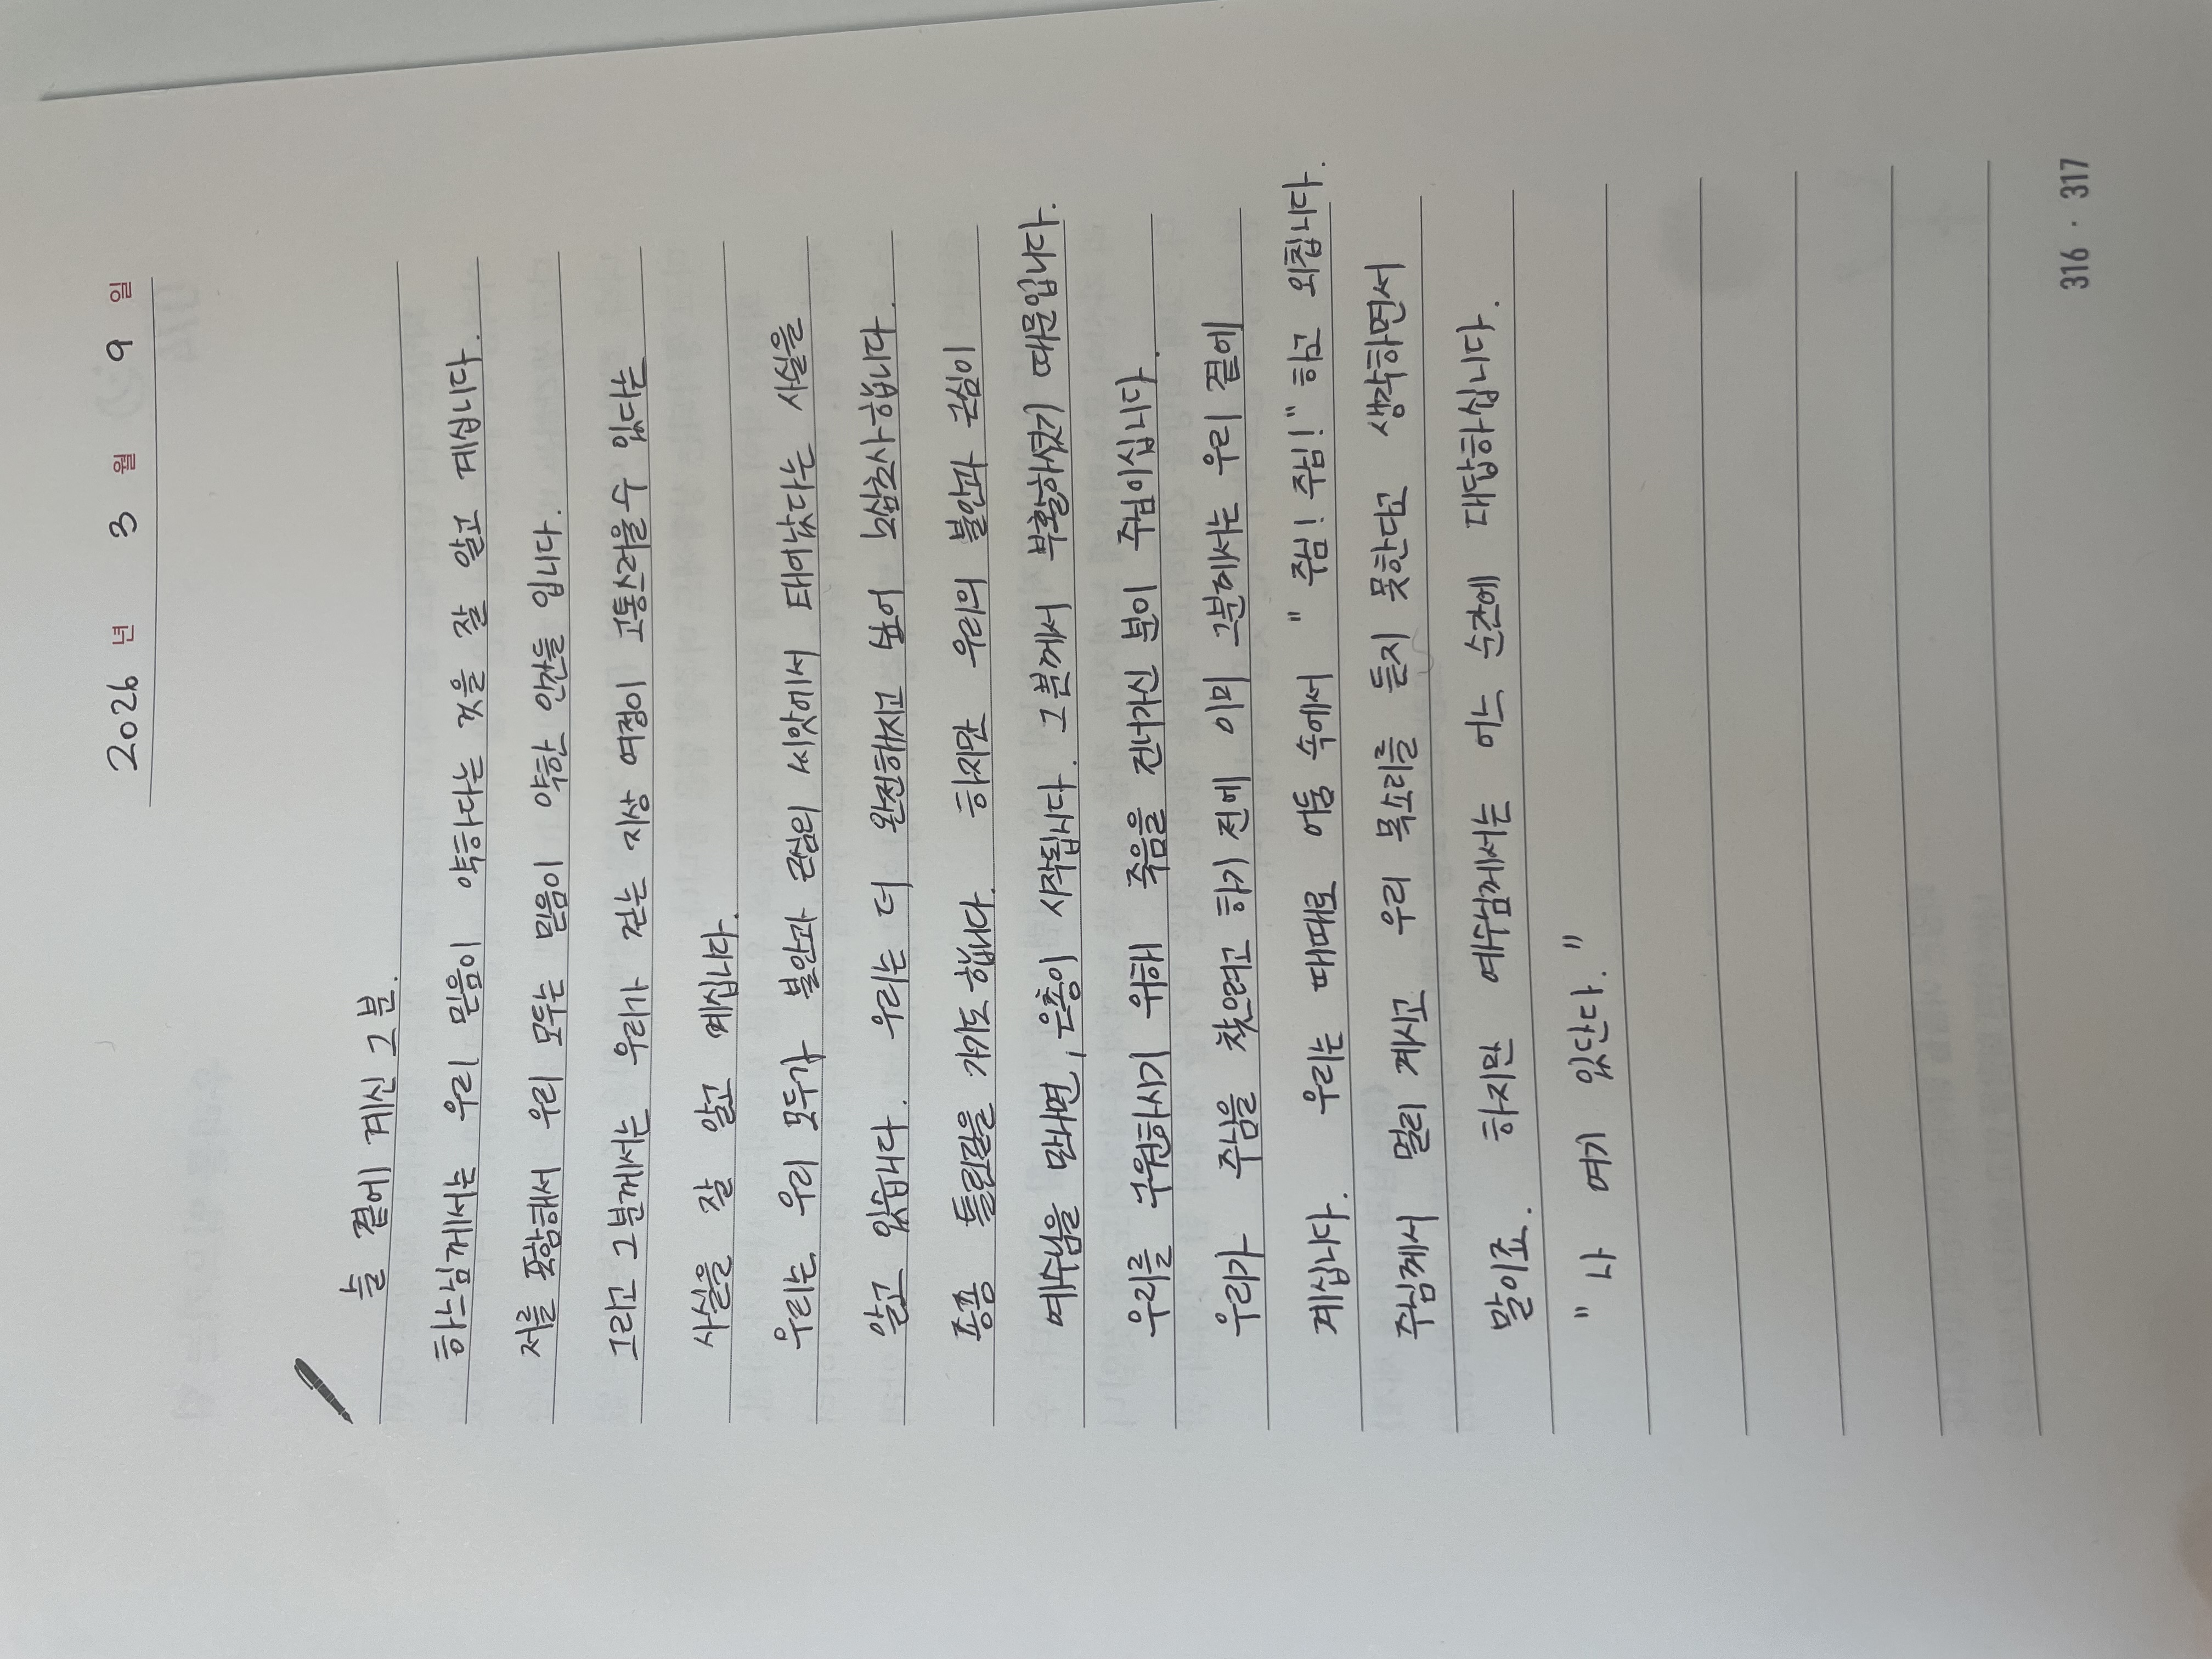 2026 년 3 월 9 일
늘 곁에 계신 그 분.
하느님께서는 우리 믿음이 약하다는 것을 잘 알고 계십니다.
저를 포함해서 우리 모두는 믿음이 약한 인간들 입니다.
그리고 그분께서는 우리가 걷는 지상 여정이 고통스러울 수 있다는
사실을 잘 알고 계십니다.
우리는 우리 모두가 불안과 근심의 씨앗에서 태어났다는 사실을
알고 있습니다. 우리는 더 완전해지고 싶어 노심초사합니다.
종종 틀린길을 가기도 합니다. 하지만 우리의 불안과 근심이
예수님을 만나면, 은총이 시작됩니다. 그분께서 부활하셨기 때문입니다.
우리를 구원하시기 위해 죽음을 건너가신 분이 주님이십니다.
우리가 주님을 찾으려고 하기 전에 이미 그분께서는 우리 곁에
계십니다. 우리는 때때로 어둠 속에서 " 주님! 주님!" 하고 외칩니다.
주님께서 멀리 계시고 우리 목소리를 듣지 못한다고 생각하면서
말이죠. 하지만 예수님께서는 어느 순간에 대답하십니다.
" 나 여기 있단다."
316 · 317